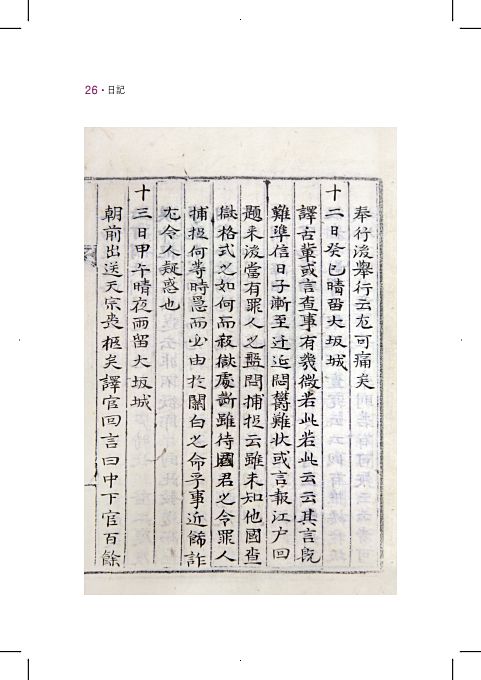 26 · 日記
奉行後舉行云尤可痛矣
十二日癸巳晴留大坂城
譯舌輩或言查事有幾微若此若此云云其言旣
難準信日子漸至迁延悶鬱難狀或言報江戶回
題來後當有罪人之盤問捕捉云雖未知他國查
獄格式之如何而殺獄處斷雖待國君之令罪人
捕捉何等時急而必由於關白之命乎事近餙詐
尤令人疑惑也
十三日甲午晴夜雨留大坂城
朝前出送天宗喪柩矣譯官回言曰中下官百餘